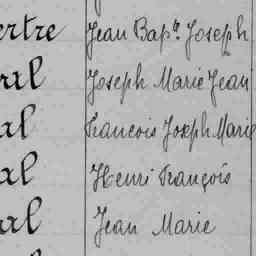 ertre Jean Bapte Joseph
al Joseph Marie Jean
al Francois Joseph Marie
al Henri François
al Jean Marie